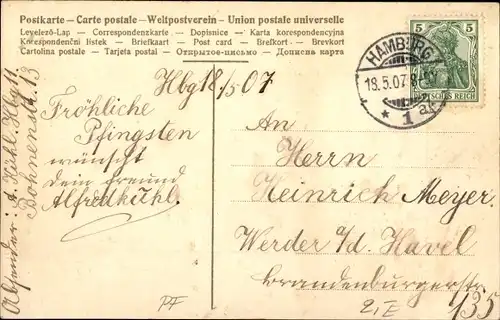 Postkarte – Carte postale – Weltpostverein – Union postale universelle
Levelező-Lap — Correspondenzkarte — Dopisnice — Karta korespondencyjna
Korespondenční lístek — Briefkaart — Post card — Brefkort — Brevkort
Cartolina postale — Tarjeta postal — Открытое письмо — Дописна карта
5 5
DEUTSCHES REICH
HAMBURG
18.5.07.8-9V
* 1 a *
Hbg 18/5 07
Fröhliche
Pfingsten
wünscht
Dein Freund
Alfred Kühl.
Absender: A. Kühl. Hbg 11.
Bohnenstr. 13
An
Herrn
Heinrich Meyer.
Werder a/d. Havel
Brandenburgerstr.
135
PF
2,E